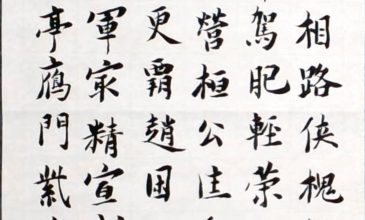 相路俠槐
駕肥輕策
營桓公匡
更霸趙困
軍冣精宣
亭鴈門紫